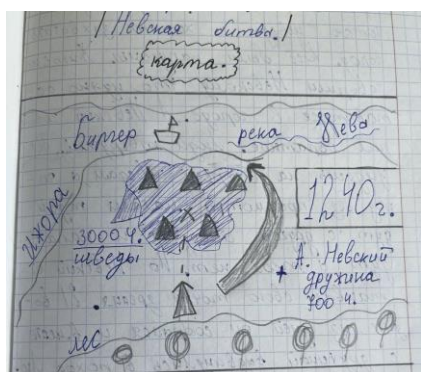 Невская битва.
карта.
Биргер
река Нева
Ижора
1240г.
3000 ч.
шведы
А. Невский
+ дружина
700 ч.
лес